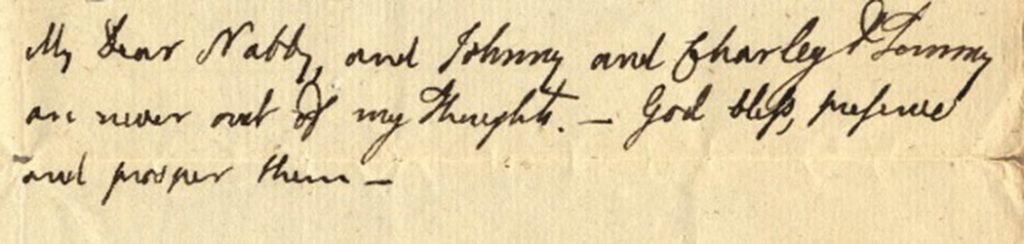 My Dear Nabby, and Johnny and Charley & Tommy
are never out of my Thoughts. — God bless, preserve
and prosper them —